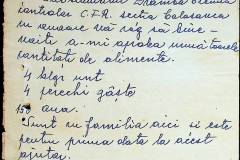 controlor C.F.R. secția Calasauca
cu onoare vă rog să bine-
voiți a-mi aproba urmă toarele
cantități de alimente.
4 klgr. unt
4 perechi gâște
150 oua.
Sunt cu familia aici si este
pentru prima data la acest
ajutor.